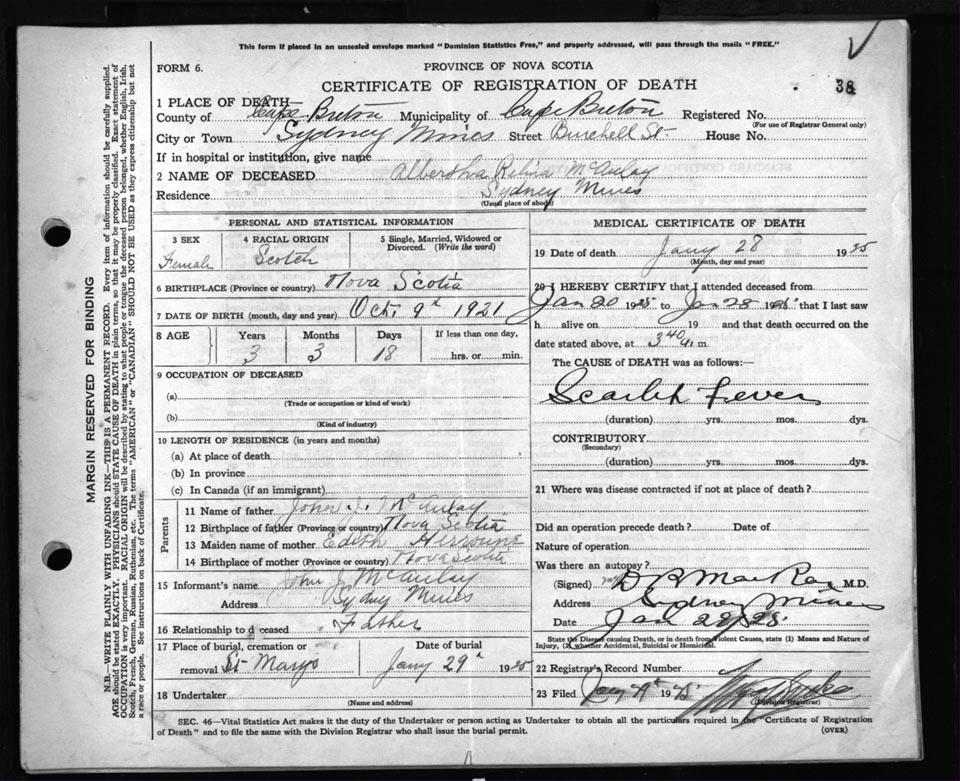 This form if placed in an unsealed envelope marked "Dominion Statistics Free," and properly addressed, will pass through the mails "FREE."
FORM 6.
PROVINCE OF NOVA SCOTIA
CERTIFICATE OF REGISTRATION OF DEATH
38
1 PLACE OF DEATH—
County of Cape Breton Municipality of Cape Breton Registered No.
(For use of Registrar General only)
City or Town Sydney Mines Street Burchell St. House No.
If in hospital or institution, give name
2 NAME OF DECEASED Albertha Relina McAulay
Residence Sydney Mines
(Usual place of abode)
PERSONAL AND STATISTICAL INFORMATION
3 SEX 4 RACIAL ORIGIN 5 Single, Married, Widowed or Divorced. (Write the word)
Female Scotch
6 BIRTHPLACE (Province or country) Nova Scotia
7 DATE OF BIRTH (month, day and year) Oct. 9th 1921
8 AGE Years Months Days If less than one day,
3 3 18 hrs. or min.
9 OCCUPATION OF DECEASED
(a)
(Trade or occupation or kind of work)
(b)
(Kind of industry)
10 LENGTH OF RESIDENCE (in years and months)
(a) At place of death
(b) In province
(c) In Canada (if an immigrant)
Parents
11 Name of father John J. McAulay
12 Birthplace of father (Province or country) Nova Scotia
13 Maiden name of mother Edith
14 Birthplace of mother (Province or country) Nova Scotia
15 Informant's name John J. McAulay
Address Sydney Mines
16 Relationship to deceased Father
17 Place of burial, cremation or Date of burial
removal St Marys Jany 29th 1925
18 Undertaker
(Name and address)
MEDICAL CERTIFICATE OF DEATH
19 Date of death Jany 28 1925
(Month, day and year)
20 I HEREBY CERTIFY that I attended deceased from
Jan 20 1925 to Jan 28 1925 that I last saw
h alive on 19 and that death occurred on the
date stated above, at 3 40 a.m.
The CAUSE OF DEATH was as follows:—
Scarlet Fever
(duration) yrs. mos. dys.
CONTRIBUTORY
(Secondary)
(duration) yrs. mos. dys.
21 Where was disease contracted if not at place of death?
Did an operation precede death? Date of
Nature of operation
Was there an autopsy?
(Signed) M.D.
Address Sydney Mines
Date Jan 28/25
State the Disease causing Death, or in death from Violent Causes, state (1) Means and Nature of
Injury, (2) whether Accidental, Suicidal or Homicidal.
22 Registrar's Record Number
23 Filed Jany 1925
(Division Registrar)
SEC. 46—Vital Statistics Act makes it the duty of the Undertaker or person acting as Undertaker to obtain all the particulars required in the "Certificate of Registration
of Death" and to file the same with the Division Registrar who shall issue the burial permit.
(OVER)
MARGIN RESERVED FOR BINDING
N.B.—WRITE PLAINLY WITH UNFADING INK—THIS IS A PERMANENT RECORD. Every item of information should be carefully supplied.
AGE should be stated EXACTLY. PHYSICIANS should STATE CAUSE OF DEATH in plain terms, so that it may be properly classified. Exact statement of
OCCUPATION is very important. RACIAL ORIGIN will be described by stating to what people or tongue the deceased person belonged, whether English, Irish,
Scotch, French, German, Russian, Ruthenian, etc. The terms "AMERICAN" or "CANADIAN" SHOULD NOT BE USED as they express citizenship but not
a race or people. See instructions on back of Certificate.